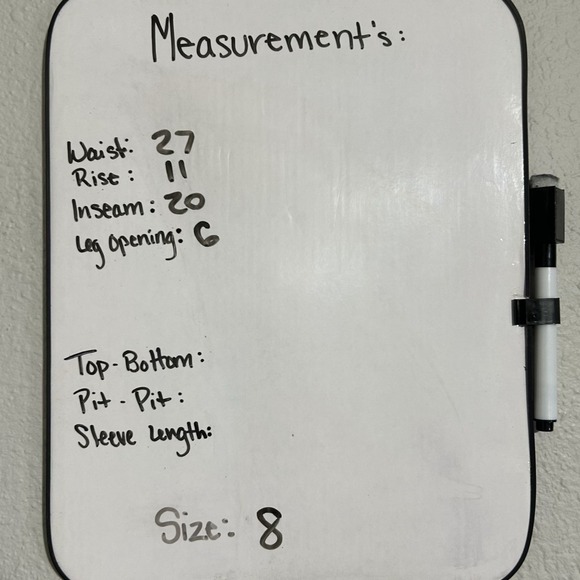 Measurement's:
Waist: 27
Rise: 11
Inseam: 20
Leg Opening: 6
Top-Bottom:
Pit-Pit:
Sleeve Length:
Size: 8